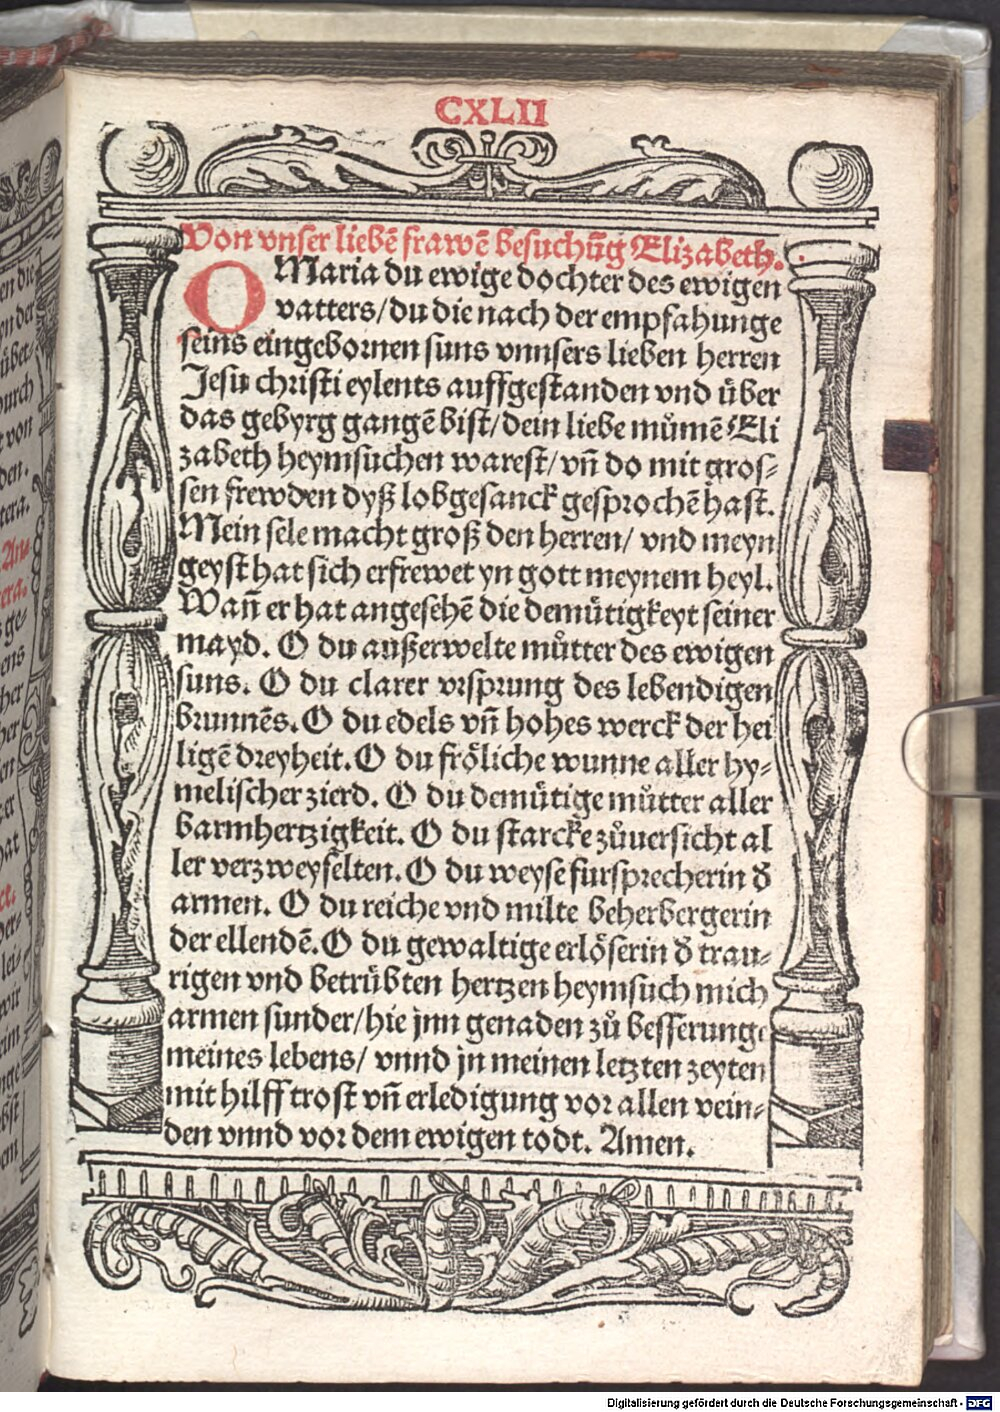 CXLII
Von vnser liebē frawē besuchūg Elizabeth.
O Maria du ewige dochter des ewigen
vatters/du die nach der empfahunge
seins eingebornen suns vnnsers lieben herren
Jesu christi eylents auffgestanden vnd über
das gebyrg gangē bist/dein liebe můmē Eli
zabeth heymsuchen warest/vñ do mit gros⸗
sen frewden dyß lobgesanck gesprochē hast.
Mein sele macht groß den herren/ vnd meyn
geyst hat sich erfrewet yn gott meynem heyl.
Wañ er hat angesehē die demütigkeyt seiner
mayd. O du außerwelte můtter des ewigen
suns. O du clarer vrsprung des lebendigen
brunnēs. O du edels vñ hohes werck der hei
ligē dreyheit. O du fröliche wunne aller hy⸗
melischer zierd. O du demütige můtter aller
barmhertzigkeit. O du starcke zůuersicht al
ler verzweyfelten. O du weyse fursprecherin d̄
armen. O du reiche vnd milte beherbergerin
der ellendē. O du gewaltige erlöserin d̄ trau⸗
rigen vnd betrübten hertzen heymsuch mich
armen sunder/hie jnn genaden zů besserunge
meines lebens/ vnnd jn meinen letzten zeyten
mit hilff trost vñ erledigung vor allen vein⸗
den vnnd vor dem ewigen todt. Amen.
Digitalisierung gefördert durch die Deutsche Forschungsgemeinschaft - DFG